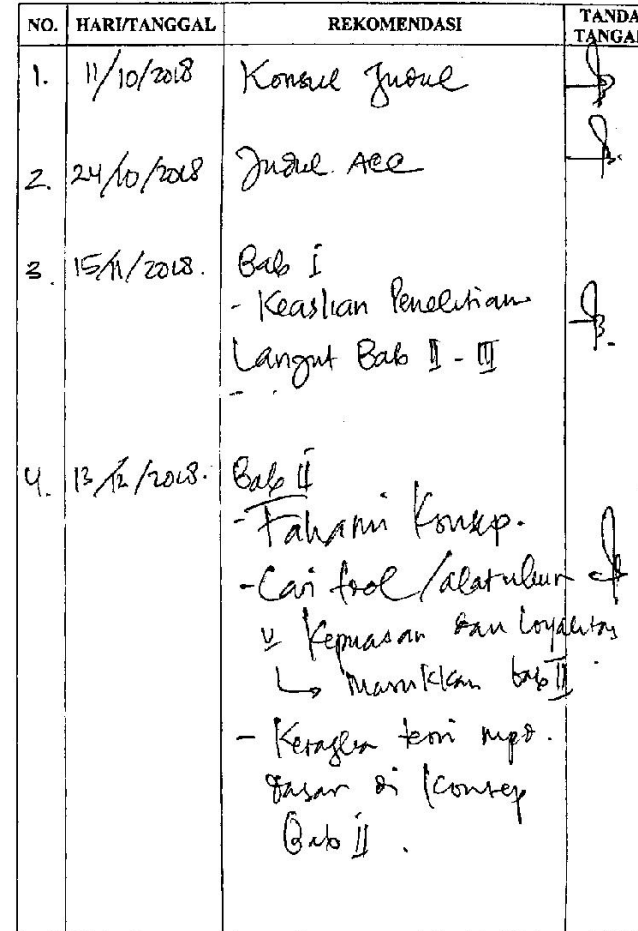 NO. HARI/TANGGAL REKOMENDASI TANDA TANGAN
1. 11/10/2018 Konsul Judul
2. 24/10/2018 Judul Acc
3. 15/11/2018. Bab I
- Keaslian Penelitian
Langut Bab II - III
4. 13/12/2018. Bab II
- Fahami Konsep.
- Cari tool / alat ukur
u Kepuasan dan Loyalitas
↳ Masukkan bab II.
- Keragka teori
dasar di Konsep
Bab II.